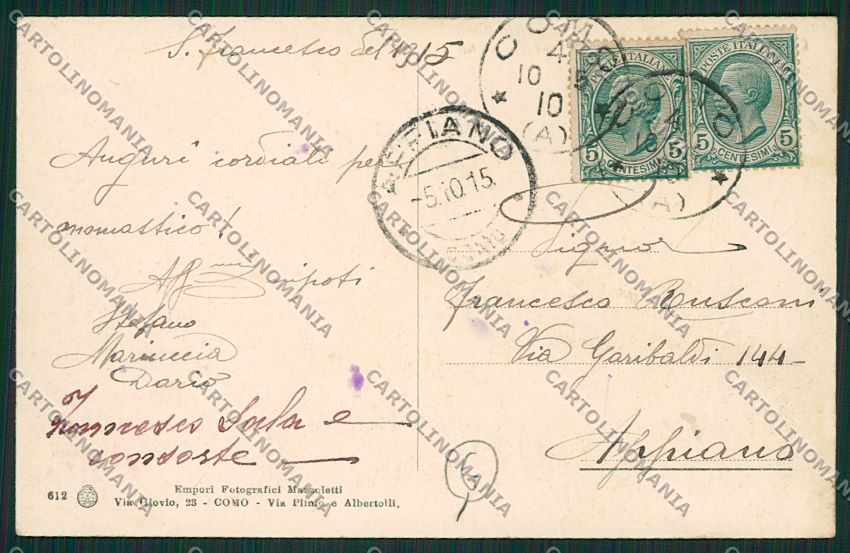 S. Francesco del 1915
Auguri cordiali per
onomastico!
Aff.mi Nipoti
Stefano
Mariuccia
Dario
Francesco Sala e
consorte
612
Empori Fotografici Mazzoletti
Via Giovio, 23 - COMO - Via Plinio e Albertolli,
COMO
4
10
10
(A)
POSTE ITALIANE
5 CENTESIMI 5
POSTE ITALIANE
5 CENTESIMI 5
COMO
(A)
APPIANO
-5.10.15
COMO
Signor
Francesco Rusconi
Via Garibaldi 144
Appiano
6
CARTOLINOMANIA